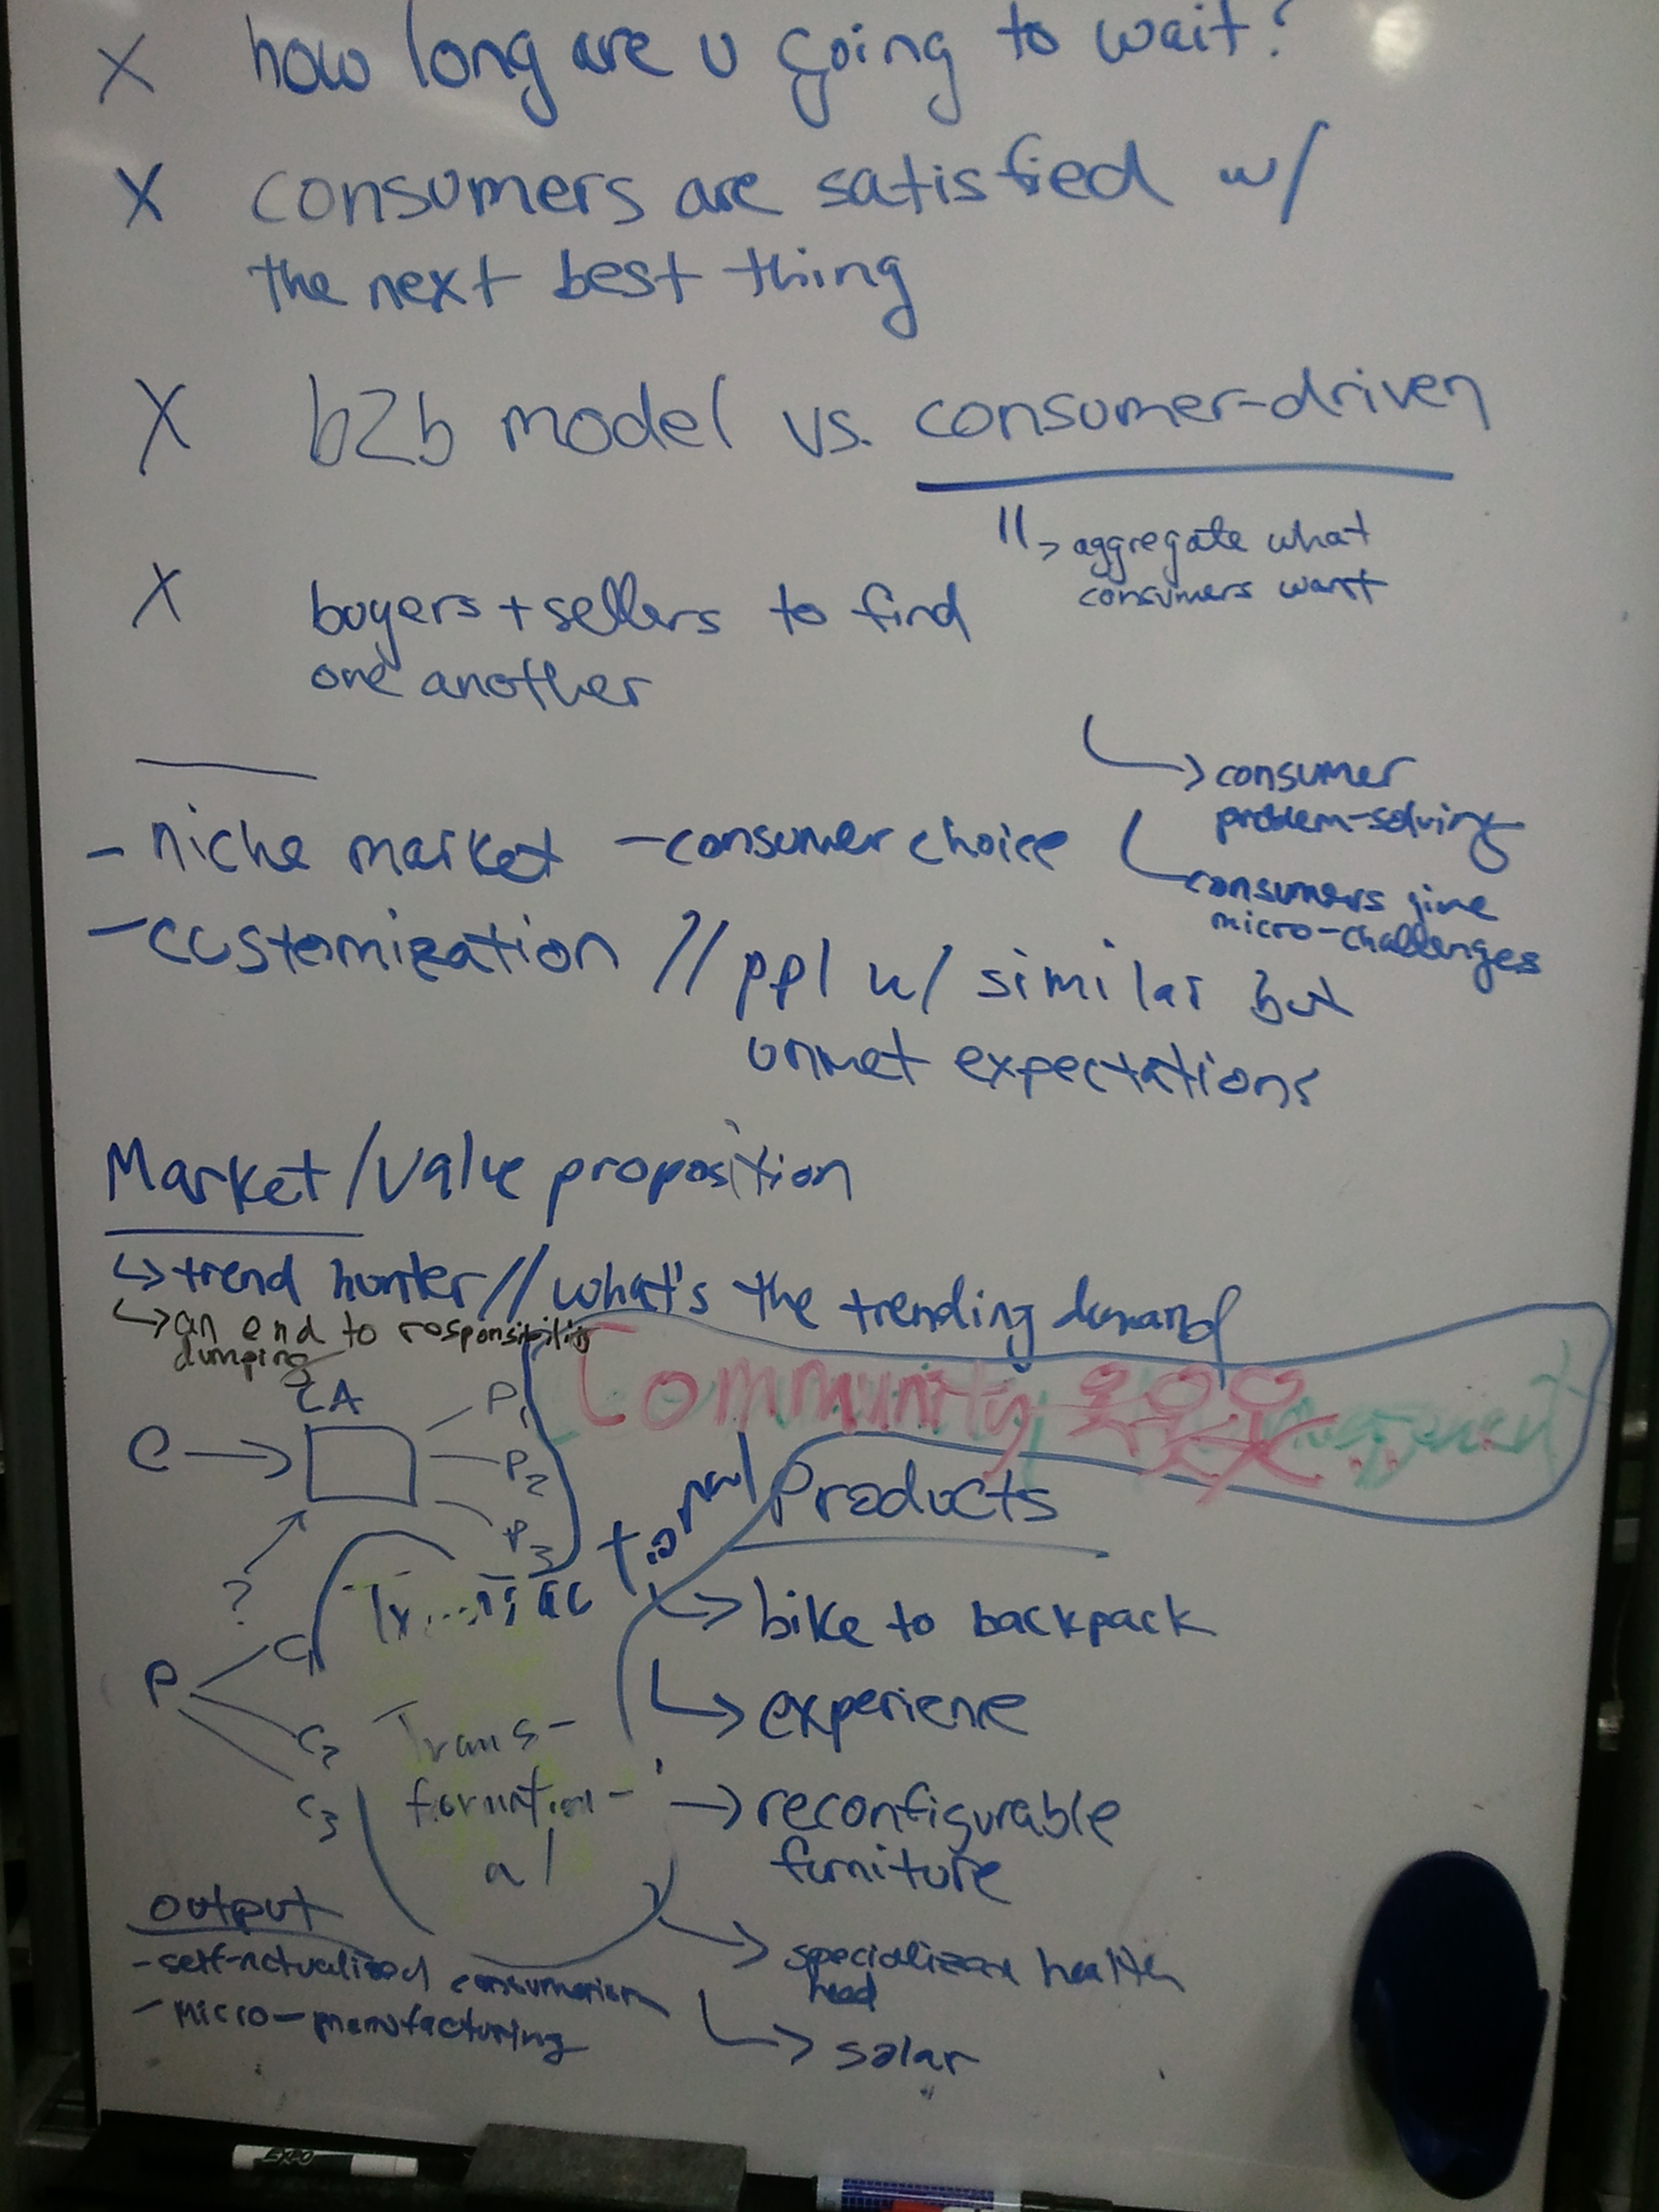 X how long are u going to wait?
X consumers are satisfied w/
the next best thing
X b2b model vs. consumer-driven
aggregate what
consumers want
X buyers + sellers to find
one another
consumer
problem-solving
- niche market - consumer choice
consumers give
micro-challenges
- customization // ppl w/ similar but
unmet expectations
Market/value proposition
trend hunter // what's the trending demand
an end to responsibility
dumping
Community
CA
C
P1
P2
P3
?
P
C1
C2
C3
Trans-
formation-
al
Products
bike to backpack
experience
reconfigurable
furniture
specialized health
solar
output
- self-actualized consumerism
- micro-manufacturing
EXPO